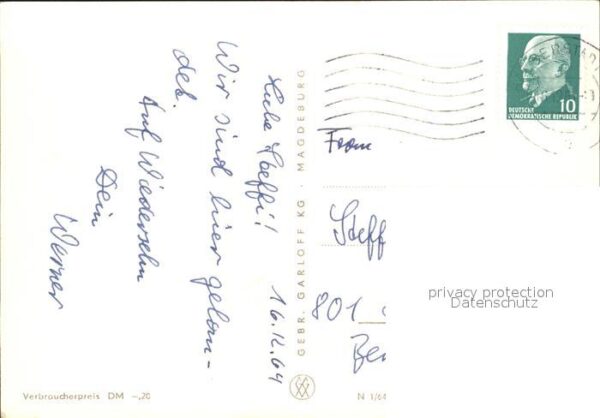 Liebe Steffi! 16.12.64
Wir sind hier gelan-
det.
Auf Wiedersehn
Dein
Werner
GEBR. GARLOFF KG · MAGDEBURG
DEUTSCHE
DEMOKRATISCHE REPUBLIK
10
Steff
801
privacy protection
Datenschutz
Verbraucherpreis DM -,20
N 1/64